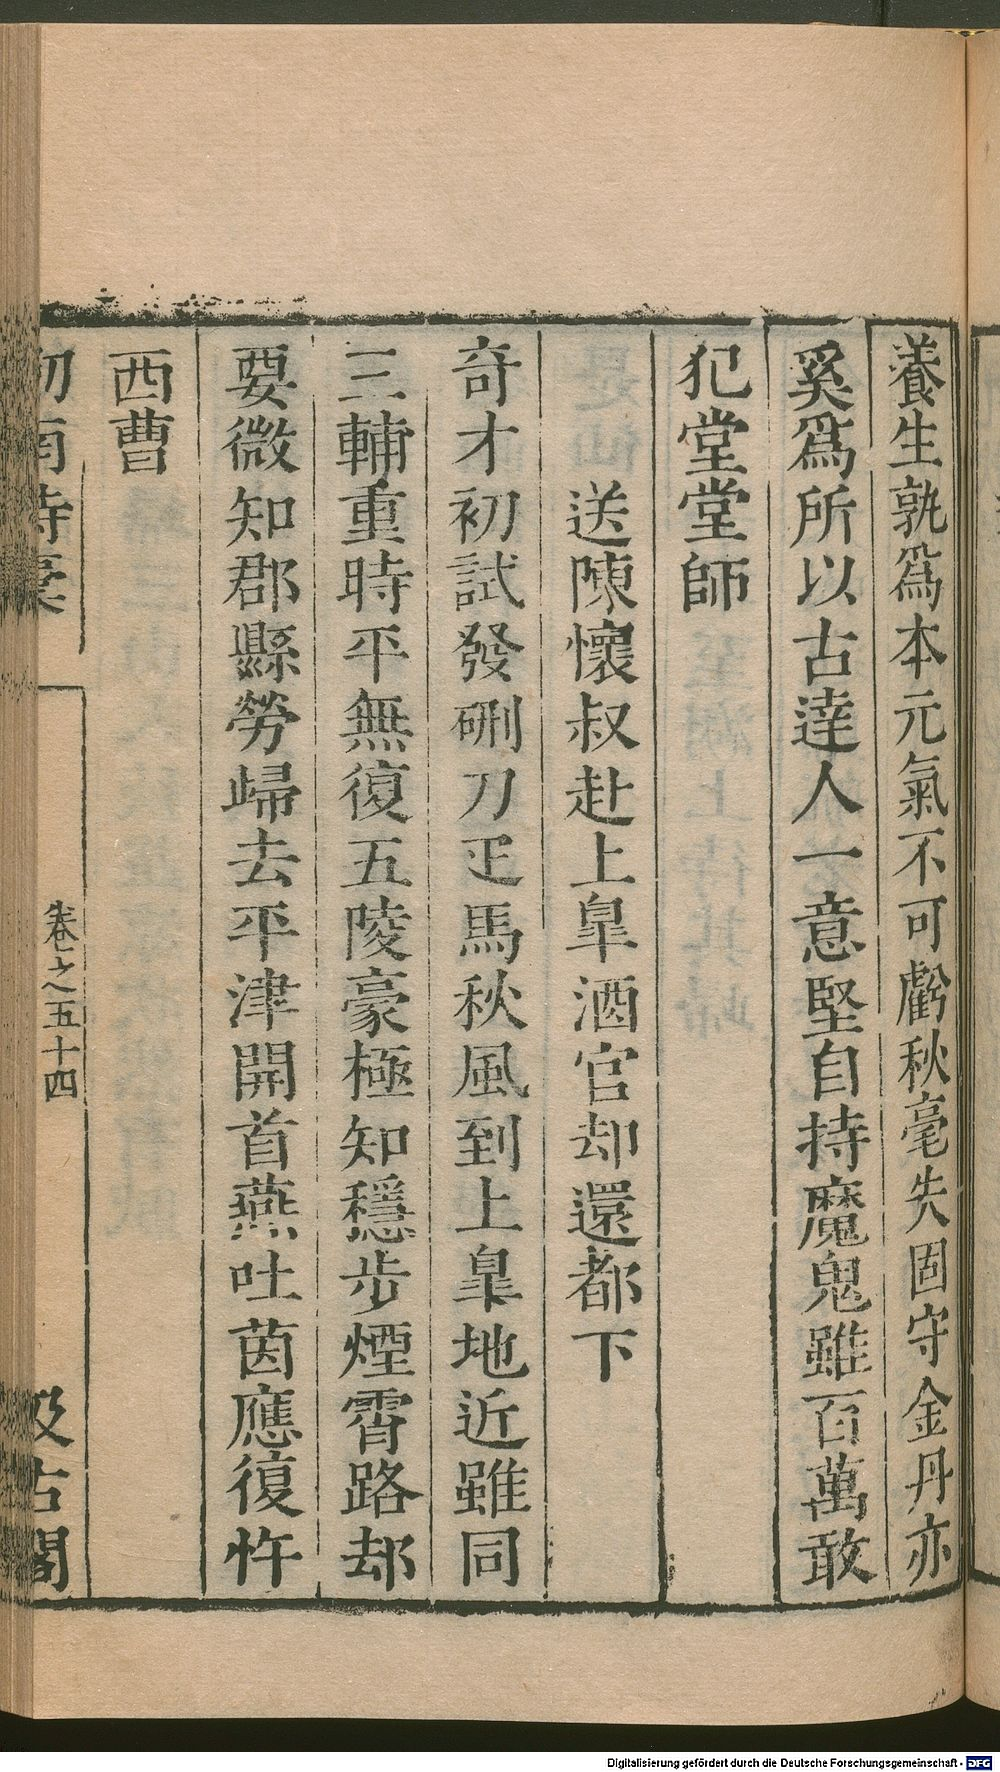 養生孰爲本元氣不可虧秋毫失固守金丹亦
奚爲所以古達人一意堅自持魔鬼雖百萬敢
犯堂堂師
送陳懷叔赴上臯酒官却還都下
奇才初試發硎刀疋馬秋風到上臯地近雖同
三輔重時平無復五陵豪極知穩步煙霄路却
要微知郡縣勞歸去平津開首燕吐茵應復忤
西曹
劒南詩稾
卷之五十四
汲古閣
Digitalisierung gefördert durch die Deutsche Forschungsgemeinschaft - DFG